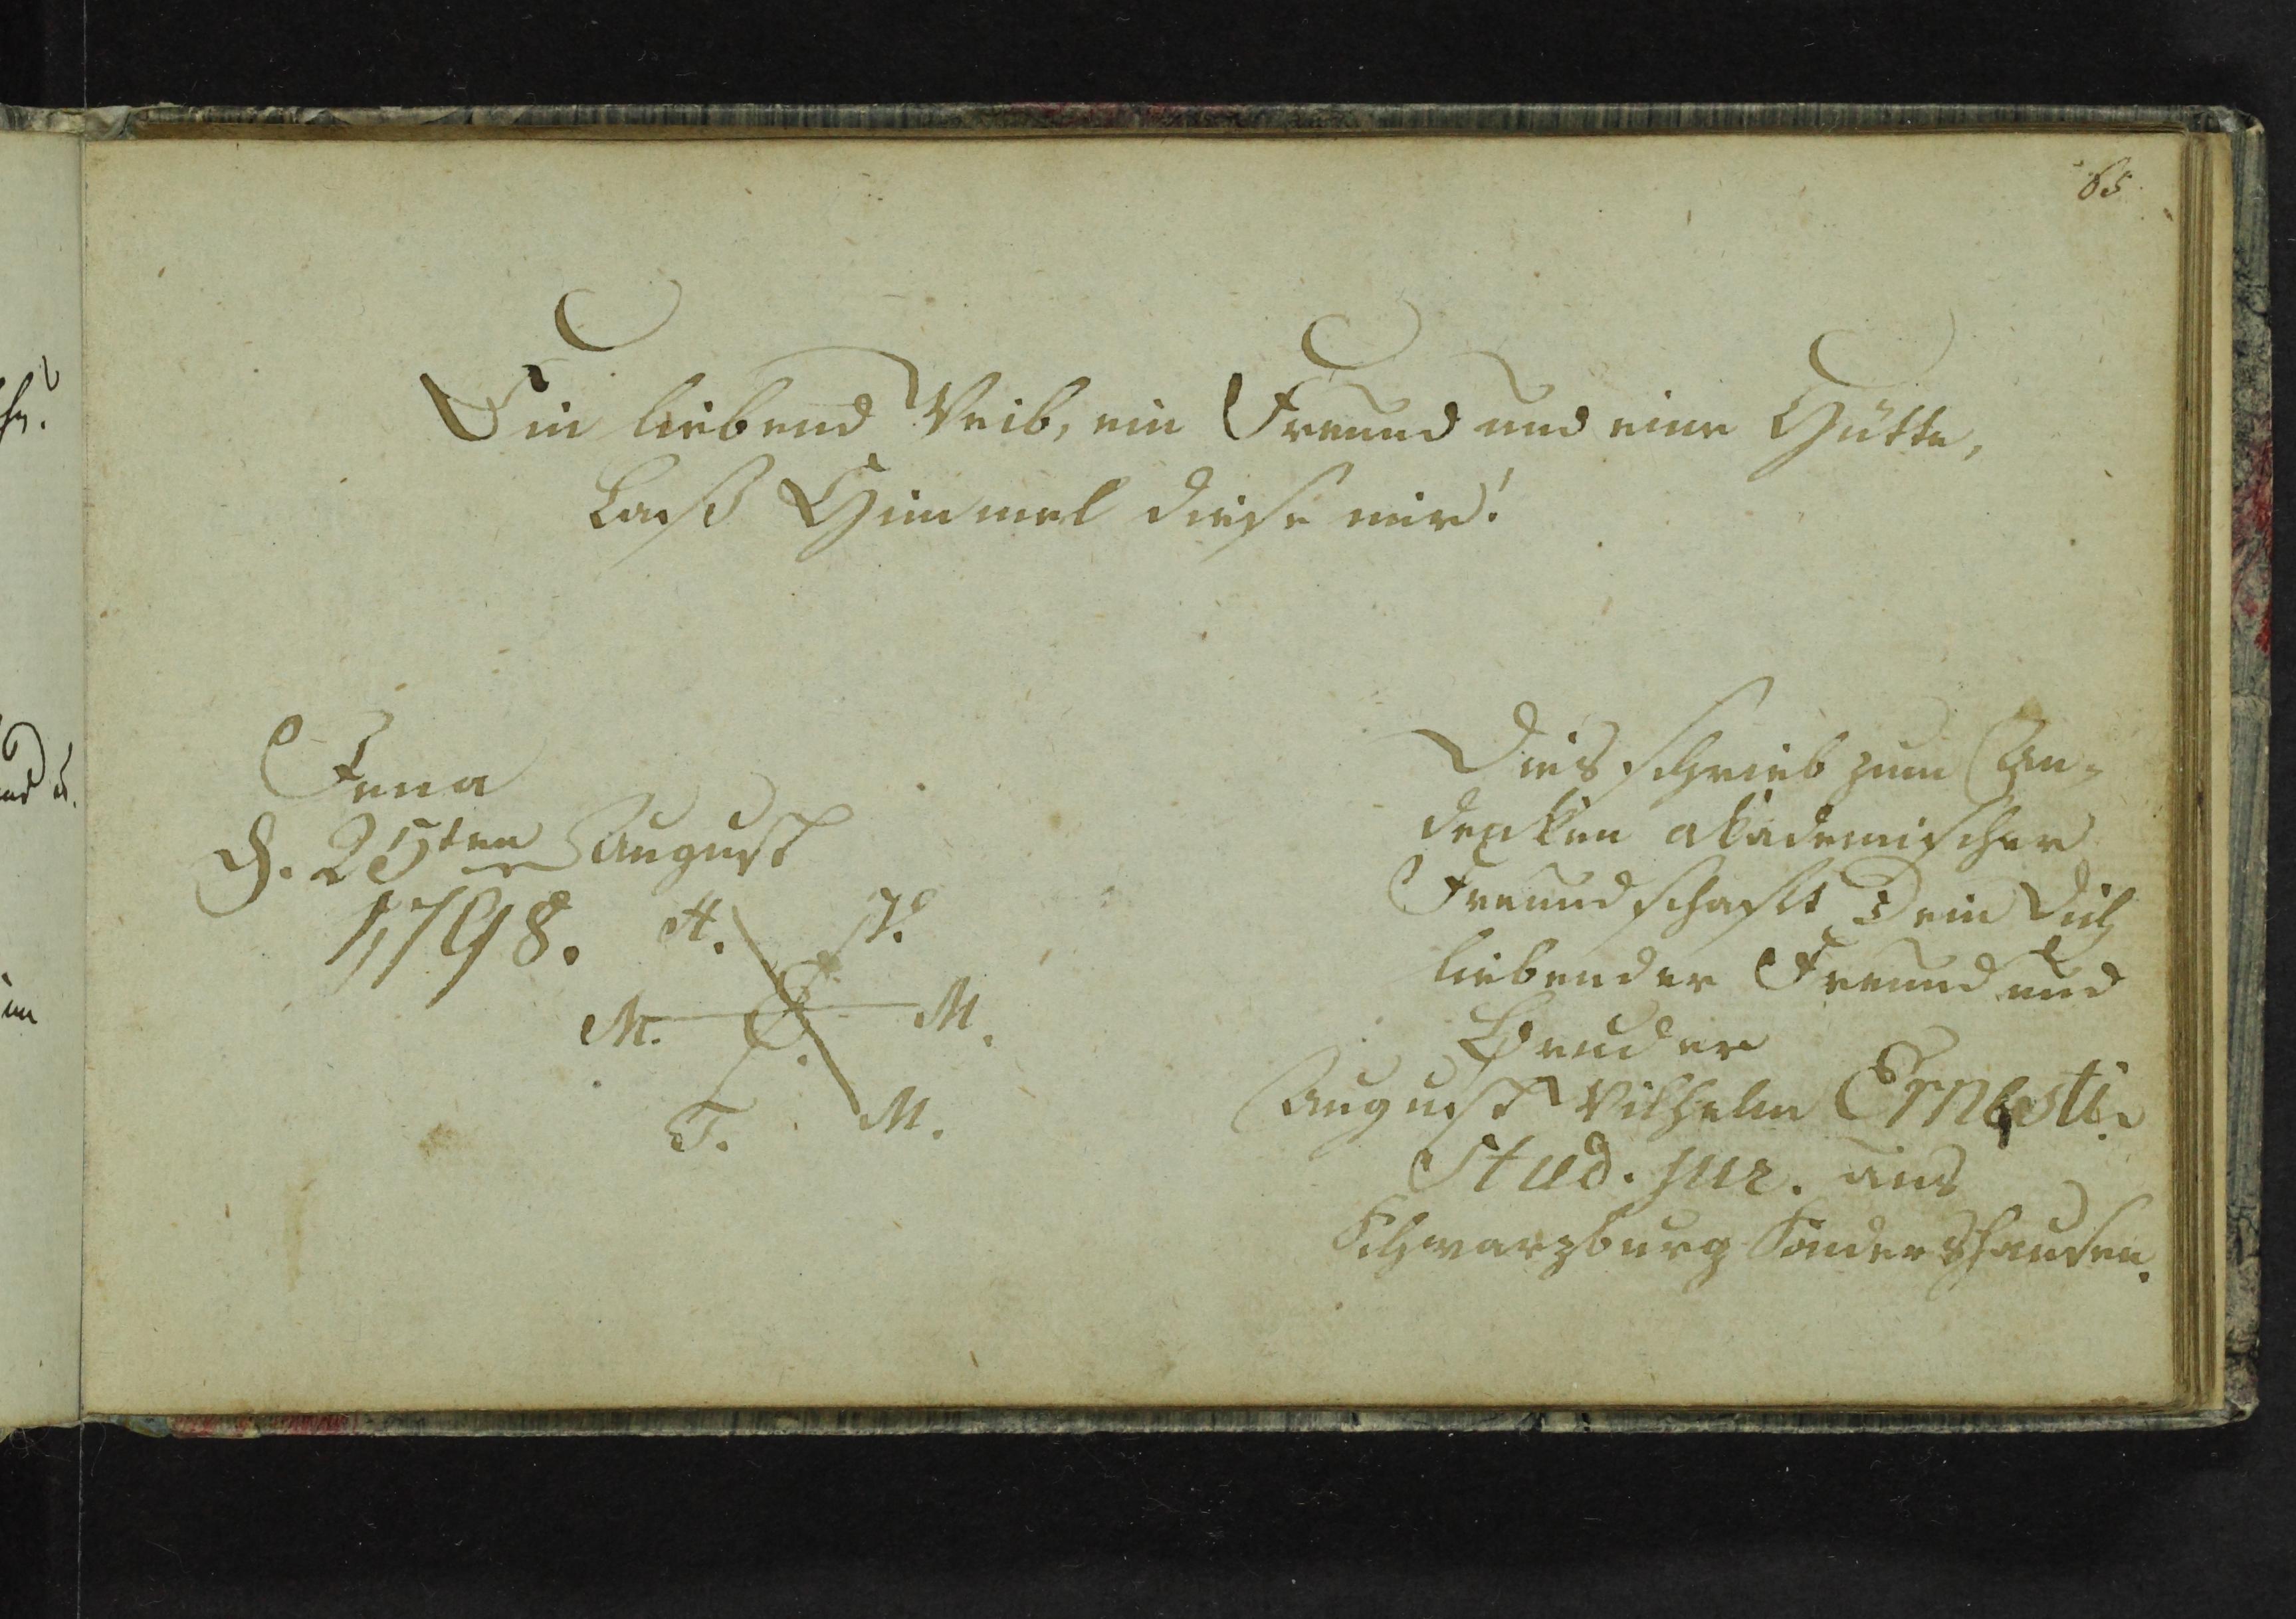 65
Ein liebend Weib, ein Freund und eine Hütte,
Laß Himmel diese mir!
Jena
d. 25ten August
1798.
Dies schrieb zum An-
denken akademischer
Freundschaft Dein Dich
liebender Freund und
Bruder
August Wilhelm Ernesti.
Stud. jur. aus
Schwarzburg Sondershausen.
M. M.
T. M.